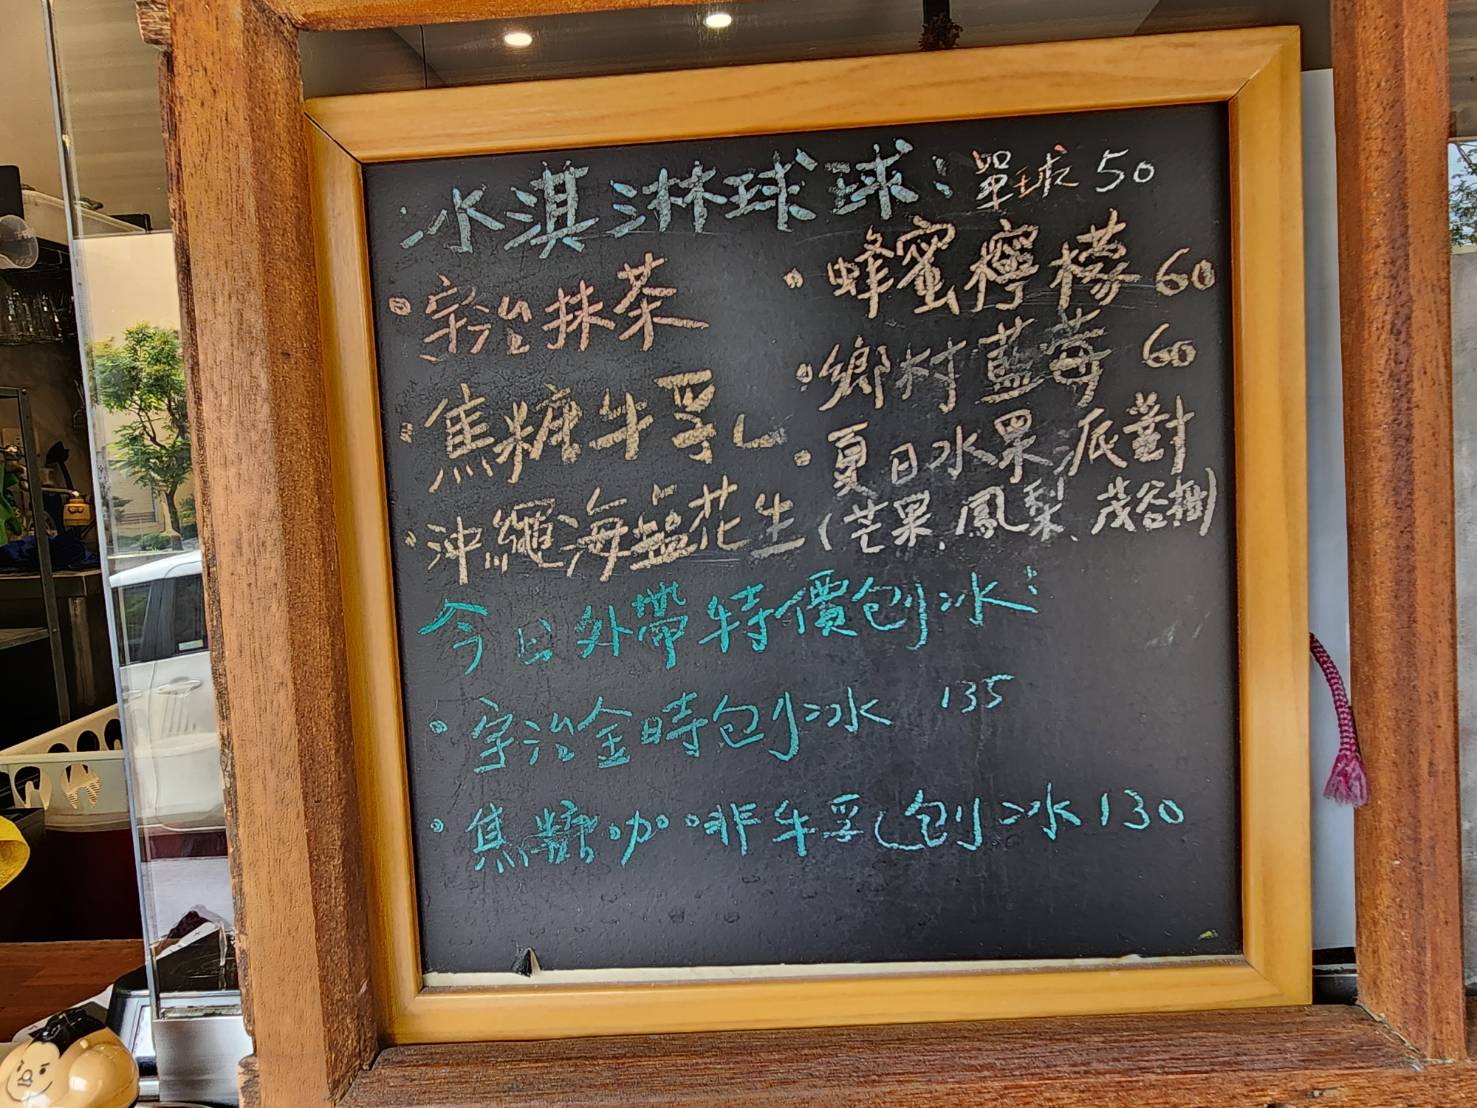 冰淇淋球球：單球 50
• 宇治抹茶
• 蜂蜜檸檬 60
• 焦糖牛乳
• 鄉村藍莓 60
• 沖繩海盐花生
• 夏日水果派對
(芒果、鳳梨、茂谷樹)
今日外帶特價刨冰：
• 宇治金時刨冰 135
• 焦糖咖啡牛乳刨冰 130